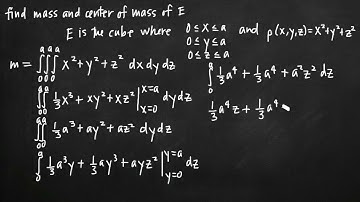 find mass and center of mass of E
E is the cube where 0 ≤ x ≤ a and ρ(x,y,z)=x²+y²+z²
0 ≤ y ≤ a
0 ≤ z ≤ a
m = ∫₀ᵃ∫₀ᵃ∫₀ᵃ x²+y²+z² dx dy dz
∫₀ᵃ∫₀ᵃ 1/3 x³ + xy² + xz² |ₓ₌₀ˣ⁼ᵃ dy dz
∫₀ᵃ∫₀ᵃ 1/3 a³ + ay² + az² dy dz
∫₀ᵃ 1/3 a³y + 1/3 ay³ + ayz² |y=0 y=a dz
∫₀ᵃ 1/3 a⁴ + 1/3 a⁴ + a²z² dz
1/3 a⁴z + 1/3 a⁴